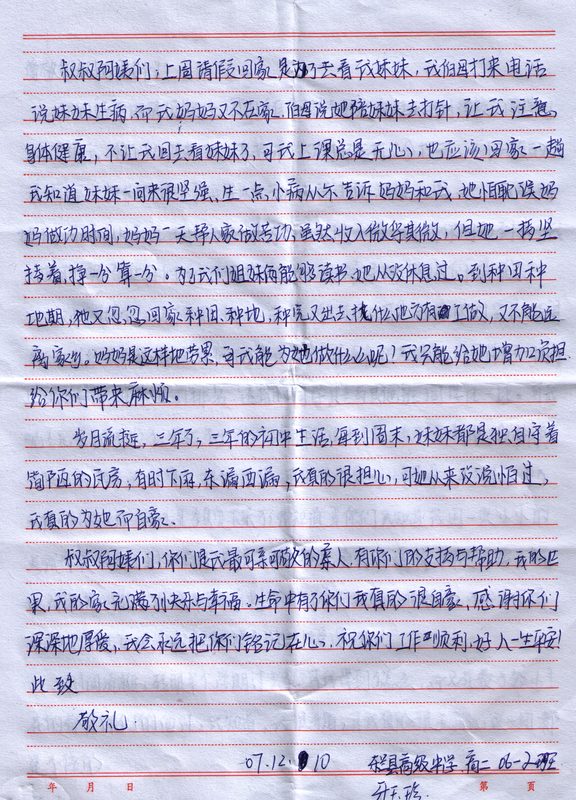 叔叔阿姨们：上周请假回家是为了去看我妹妹，我伯母打来电话
说妹妹生病，而我妈妈又不在家，伯母说她陪妹妹去打针，让我注意
身体健康，不让我回去看妹妹了，可我上课总是无心，也应该回家一趟
我知道妹妹一向来很坚强、生一点小病从不告诉妈妈和我，她怕耽误妈
妈做功时间，妈妈一天帮人家做苦功、虽然收入微乎其微，但她一挎坚
持着，挣一分算一分。为了我们姐妹俩能够读书，她从没休息过。到种田种
地期，她又忽忽回家种田、种地，种完又出去找什么地方有工做，又不能远
离家乡。妈妈是这样地苦累，可我能为她做什么呢！我只能给她增加负担
给你们带来麻烦。
岁月流挺，三年了，三年的初中生活，每到周末，妹妹都是独自守着
简陋的瓦房，有时下雨，东漏西漏，我真的很担心，可她从来没说怕过，
我真的为她而自豪、
叔叔阿姨们，你们是我最可亲可敬的亲人，有你们的支持与帮助，我的
果，我的家充满了快乐与幸福。生命中有了你们我真的很自豪、感谢你们
深深地厚爱，我会永远把你们铭记在心，祝你们工作顺利，好人一生平安！
此致
敬礼。
07.12.10 东兰县高级中学 高二 06-2班
年 月 日 第 页